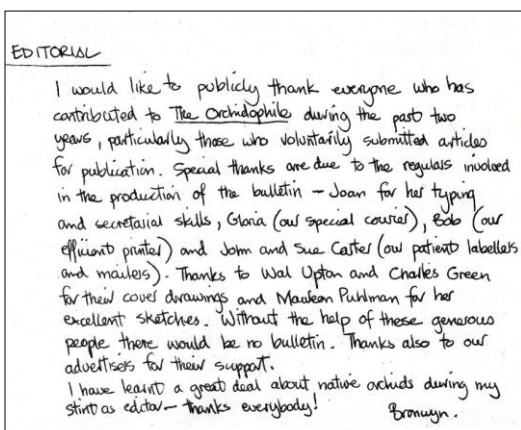 EDITORIAL
I would like to publicly thank everyone who has
contributed to The Orchidophile during the past two
years, particularly those who voluntarily submitted articles
for publication. Special thanks are due to the regulars involved
in the production of the bulletin – Joan for her typing
and secretarial skills, Gloria (our special courier), Bob (our
efficient printer) and John and Sue Carter (our patient labellers
and mailers). Thanks to Wal Upton and Charles Green
for their cover drawings and Maureen Puhlman for her
excellent sketches. Without the help of these generous
people there would be no bulletin. Thanks also to our
advertisers for their support.
I have learnt a great deal about native orchids during my
stint as editor – thanks everybody!
Bronwyn.